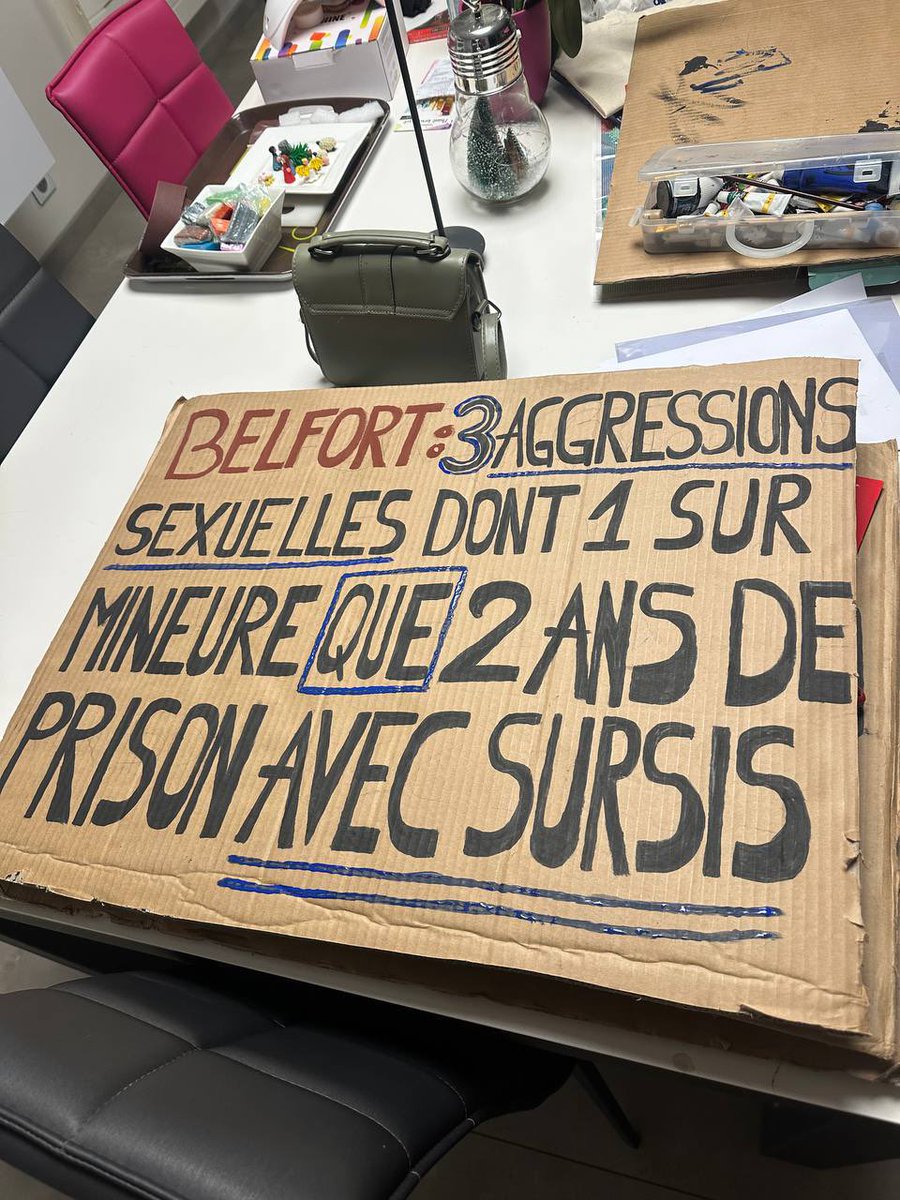 BELFORT: 3 AGGRESSIONS
SEXUELLES DONT 1 SUR
MINEURE QUE 2 ANS DE
PRISON AVEC SURSIS